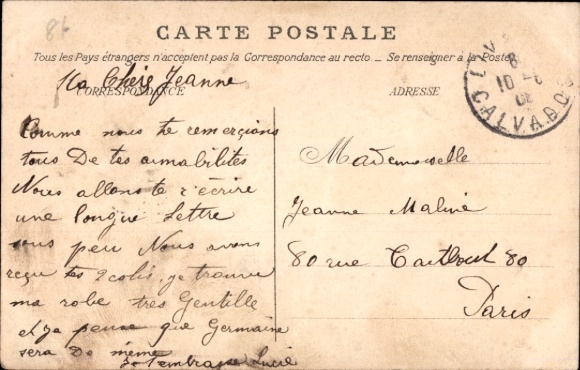 86
CARTE POSTALE
Tous les Pays étrangers n'acceptent pas la Correspondance au recto — Se renseigner à la Poste
CORRESPONDANCE
ADRESSE
CALVADOS
Ma Chère Jeanne
Comme nous te remercions
tous De tes amabilités
Nous allons te r'écrire
une longue Lettre
sous peu Nous avons
reçu tes 2 colis, je trouve
ma robe très Gentille
et je pense que Germaine
sera De même
t'embrasse Lucie
Mademoiselle
Jeanne Maline
80 rue Taitbout 80
Paris